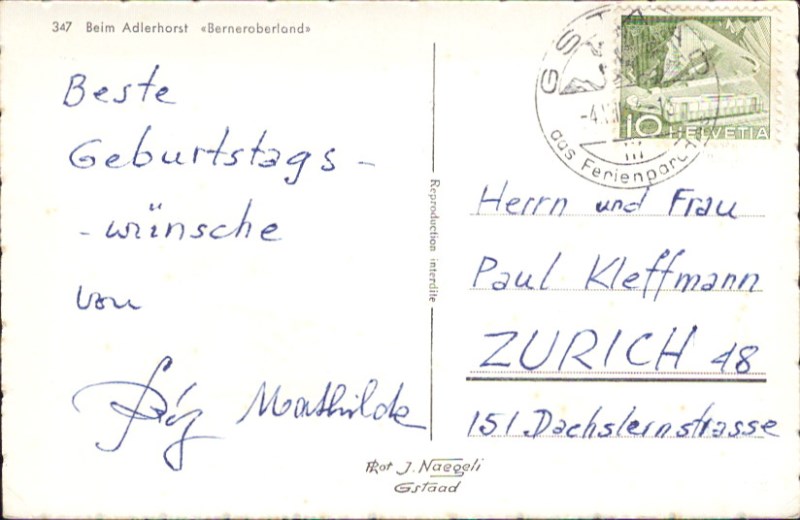 347 Beim Adlerhorst «Berneroberland»
Beste
Geburtstags -
- wünsche
von
Mathilde
Reproduction interdite
GSTAAD
das Ferienparadies
10 HELVETIA
Herrn und Frau
Paul Kleffmann
ZURICH 48
151. Dachslernstrasse
Phot J. Naegeli
Gstaad